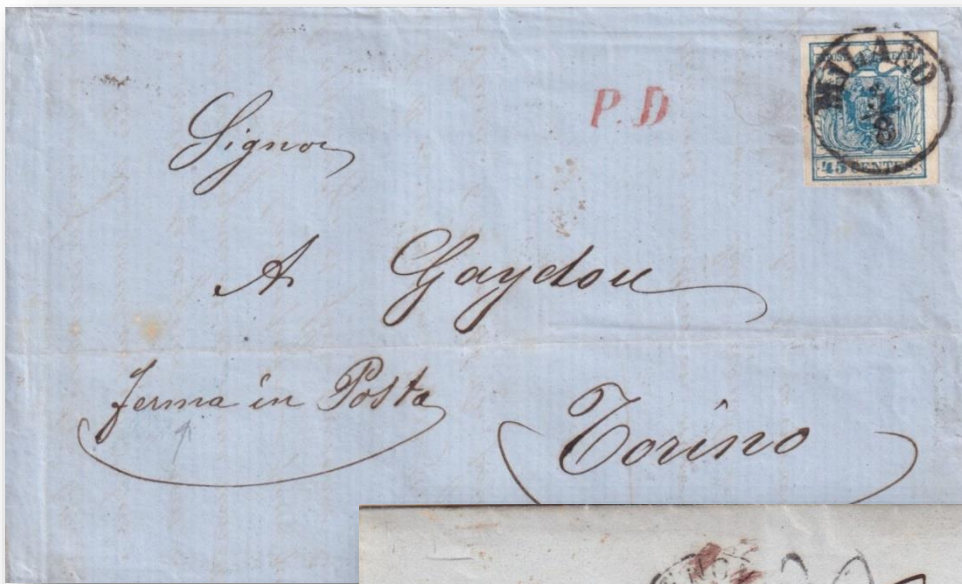 P.D
MILANO
8
45 CENTES.
Signor
A Gaydou
ferma in Posta
Torino